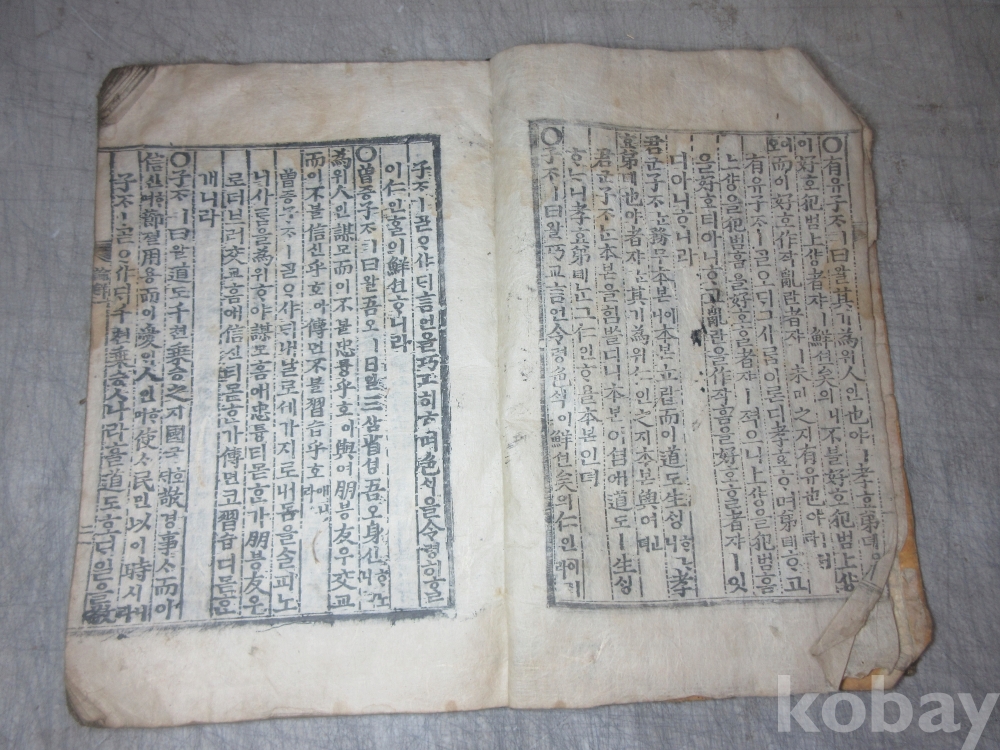 ○有유子ᄌᆞㅣ曰왈其기爲위人인也야ㅣ孝효弟뎨오
이好호犯범上샹者쟈ㅣ鮮션矣의니不블好호犯범上샹
이오而이好호作작亂란者쟈ㅣ未미之지有유也야
有유子ᄌᆞㅣᄀᆞᆯᄋᆞ디그사ᄅᆞᆷ이론디孝효ᄒᆞ며弟뎨ᄒᆞ고
上샹을犯범홈을好호ᄒᆞᆯ者쟈ㅣ젹으니上샹을犯범홈
을好호티아니ᄒᆞ고亂란을作작홈을好호ᄒᆞᆯ者쟈ㅣ잇
디아니ᄒᆞ니라
君군子ᄌᆞᄂᆞᆫ務무本본이니本본立립而이道도生ᄉᆡᆼᄒᆞᄂᆞ니孝
효弟뎨也야者쟈ᄂᆞᆫ其기爲위人인之지本본與여뎌
君군子ᄌᆞᄂᆞᆫ本본을힘ᄡᅳᆯ디니本본이셤애道도ㅣ生ᄉᆡᆼ
ᄒᆞᄂᆞ니孝효弟뎨ᄂᆞᆫ그仁인ᄒᆞᄂᆞᆫ本본인뎌
○子ᄌᆞㅣ曰왈巧교言언令령色ᄉᆡᆨ이鮮션矣의仁인이니라
子ᄌᆞㅣᄀᆞᆯᄋᆞ샤ᄃᆡ言언을巧교히ᄒᆞ며色ᄉᆡᆨ을令령히ᄒᆞᆯ
이仁인ᄒᆞ리鮮션ᄒᆞ니라
○曾증子ᄌᆞㅣ曰왈吾오ㅣ日일三삼省셩吾오身신ᄒᆞ노니
爲위人인謀모而이不블忠튱乎호아與여朋븡友우交교
而이不블信신乎호아傳뎐不블習습乎호애니라
曾증子ᄌᆞㅣᄀᆞᆯᄋᆞ샤ᄃᆡ내날로세가지로내몸을ᄉᆞᆯ피노
니사ᄅᆞᆷ을爲위ᄒᆞ야謀모홈애忠튱티몯ᄒᆞᆫ가朋븡友우
로더브러交교홈애信신티몯ᄒᆞᆫ가傳뎐코習습디몯ᄒᆞᆫ
개니라
○子ᄌᆞㅣ曰왈道도千쳔乘승之지國국호ᄃᆡ敬경事ᄉᆞ而이
信신ᄒᆞ며節졀用용而이愛ᄋᆡ人인ᄒᆞ며使ᄉᆞ民민以이時시니라
子ᄌᆞㅣᄀᆞᆯᄋᆞ샤ᄃᆡ千쳔乘승ㅅ나라흘道도호ᄃᆡ일을敬
kobay